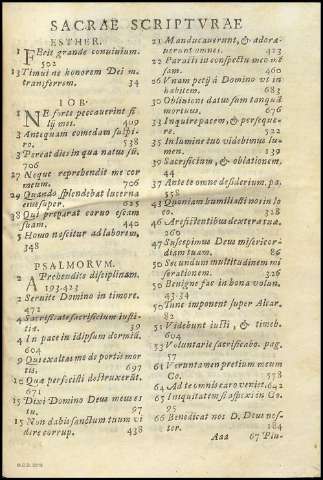 SACRAE SCRIPTVRAE
ESTHER.
1 FErit grande conuiuium.
502
13 Timui ne honorem Dei m.
transferrem. 34
IOB.
1 NE forte peccauerint fi
lij mei. 409
3 Antequam comedam suspi-
ro. 538
3 Pereat dies in qua natus sū
706
27 Neque reprehendit me cor
meum. 706
29 Quando splendebat lucerna
eius super. 625
38 Qui preparat coruo escam
suam. 440
5 Homo nascitur ad laborem,
348
PSALMORVM.
2 APrehendite disciplinam.
193.423
2 Seruite Domino in timore.
472
4 Sacrificate sacrificium iusti-
tiæ. 39
4 In pace in idipsum dormiā.
604
9 Qui exaltas me de portis mor
tis. 697
10 Quæ perfecisti destruxerūt.
601
15 Dixi Domino Deus meus es
tu. 97
15 Non dabis sanctum tuum vi
dere corrup. 438
21 Manducauerunt, & adora-
uerunt omnes. 423
22 Parasti in conspectu meo mē
sam. 460
26 Vnam petij à Domino vt in
habitem. 683
30 Obliuioni datus sum tanquā
mortuus, 676
33 Inquire pacem, & perseque-
re. 522
35 In lumine tuo videbimus lu-
men. 139
39 Sacrificium, & oblationem,
44
37 Ante te omne desiderium. pa
558
43 Quoniam humiliasti nos in lo
co. 328
46 A resistentibus dexteræ tuæ.
260
47 Suscepimus Deus misericor-
diam tuam. 86
50 Secundum multitudinem mi
serationem. 326
50 Benigne fac in bona volun.
43.34
50 Tunc imponent super Altar.
82
51 Videbunt iusti, & timeb.
604
53 Voluntarie sacrificabo. pag.
57
61 Veruntamen pretium meum
Co. 578
64 Ad te omnis caro veniet. 642
65 Iniquitatem si aspexi in Co.
95
66 Benedicat nos D, Deus nos-
ter. 184
Aaa 67 Plu-